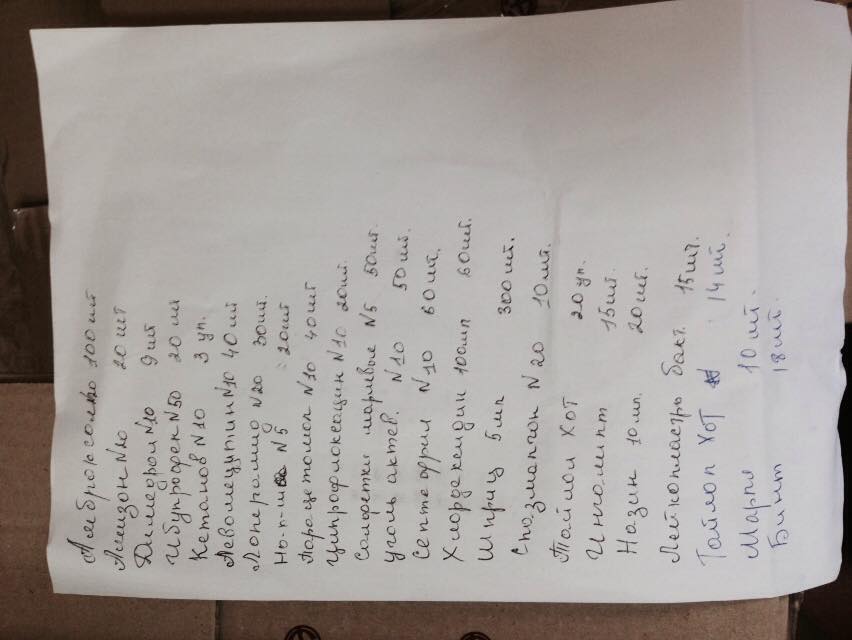 Амброксол 100шт
Амизон N10 20 шт
Димедрол N10 9шт
Ибупрофен N50 20 шт
Кетанов N10 3 уп.
Левомецитин N10 40шт
Лоперамид N20 30шт.
Но-п-ша N5 20шт
Парацетамол N10 40шт
Ципрофлоксацин N10 20шт.
Салфетки марлевые N5 50шт.
уголь актев. N10 50шт.
Септефрил N10 60шт.
Хлоргексидин 100мл 60шт.
Шприц 5мл 300шт.
Спазмалгон N20 10шт.
Тайлол ХОТ 20уп.
Ингалипт 15шт.
Називин 10мл. 20шт.
Лейкопластр бакт. 15шт.
Тайлол ХОТ 14шт.
Марля 10шт.
Бинт 18шт.